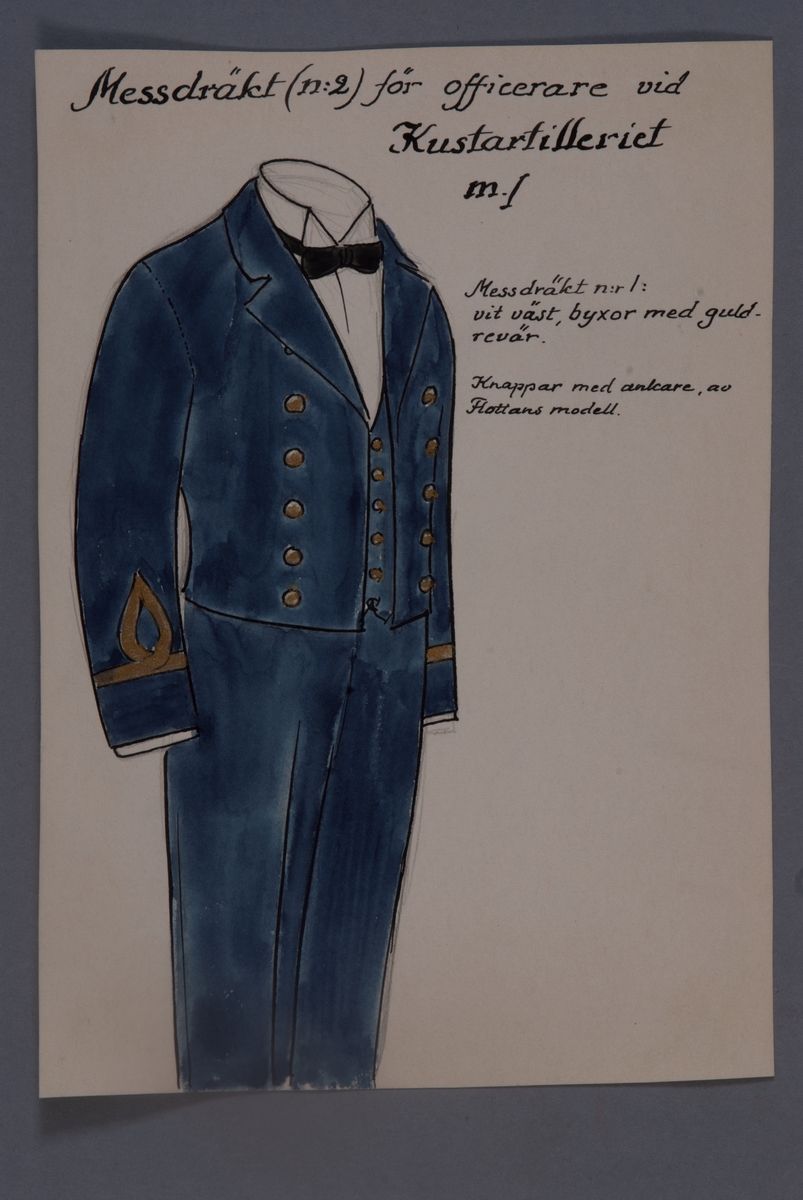 Messdräkt (n:2) för officerare vid
Kustartilleriet
m.f
Messdräkt n:r 1:
vit väst, byxor med guld-
revär.
Knappar med ankare, av
Flottans modell.